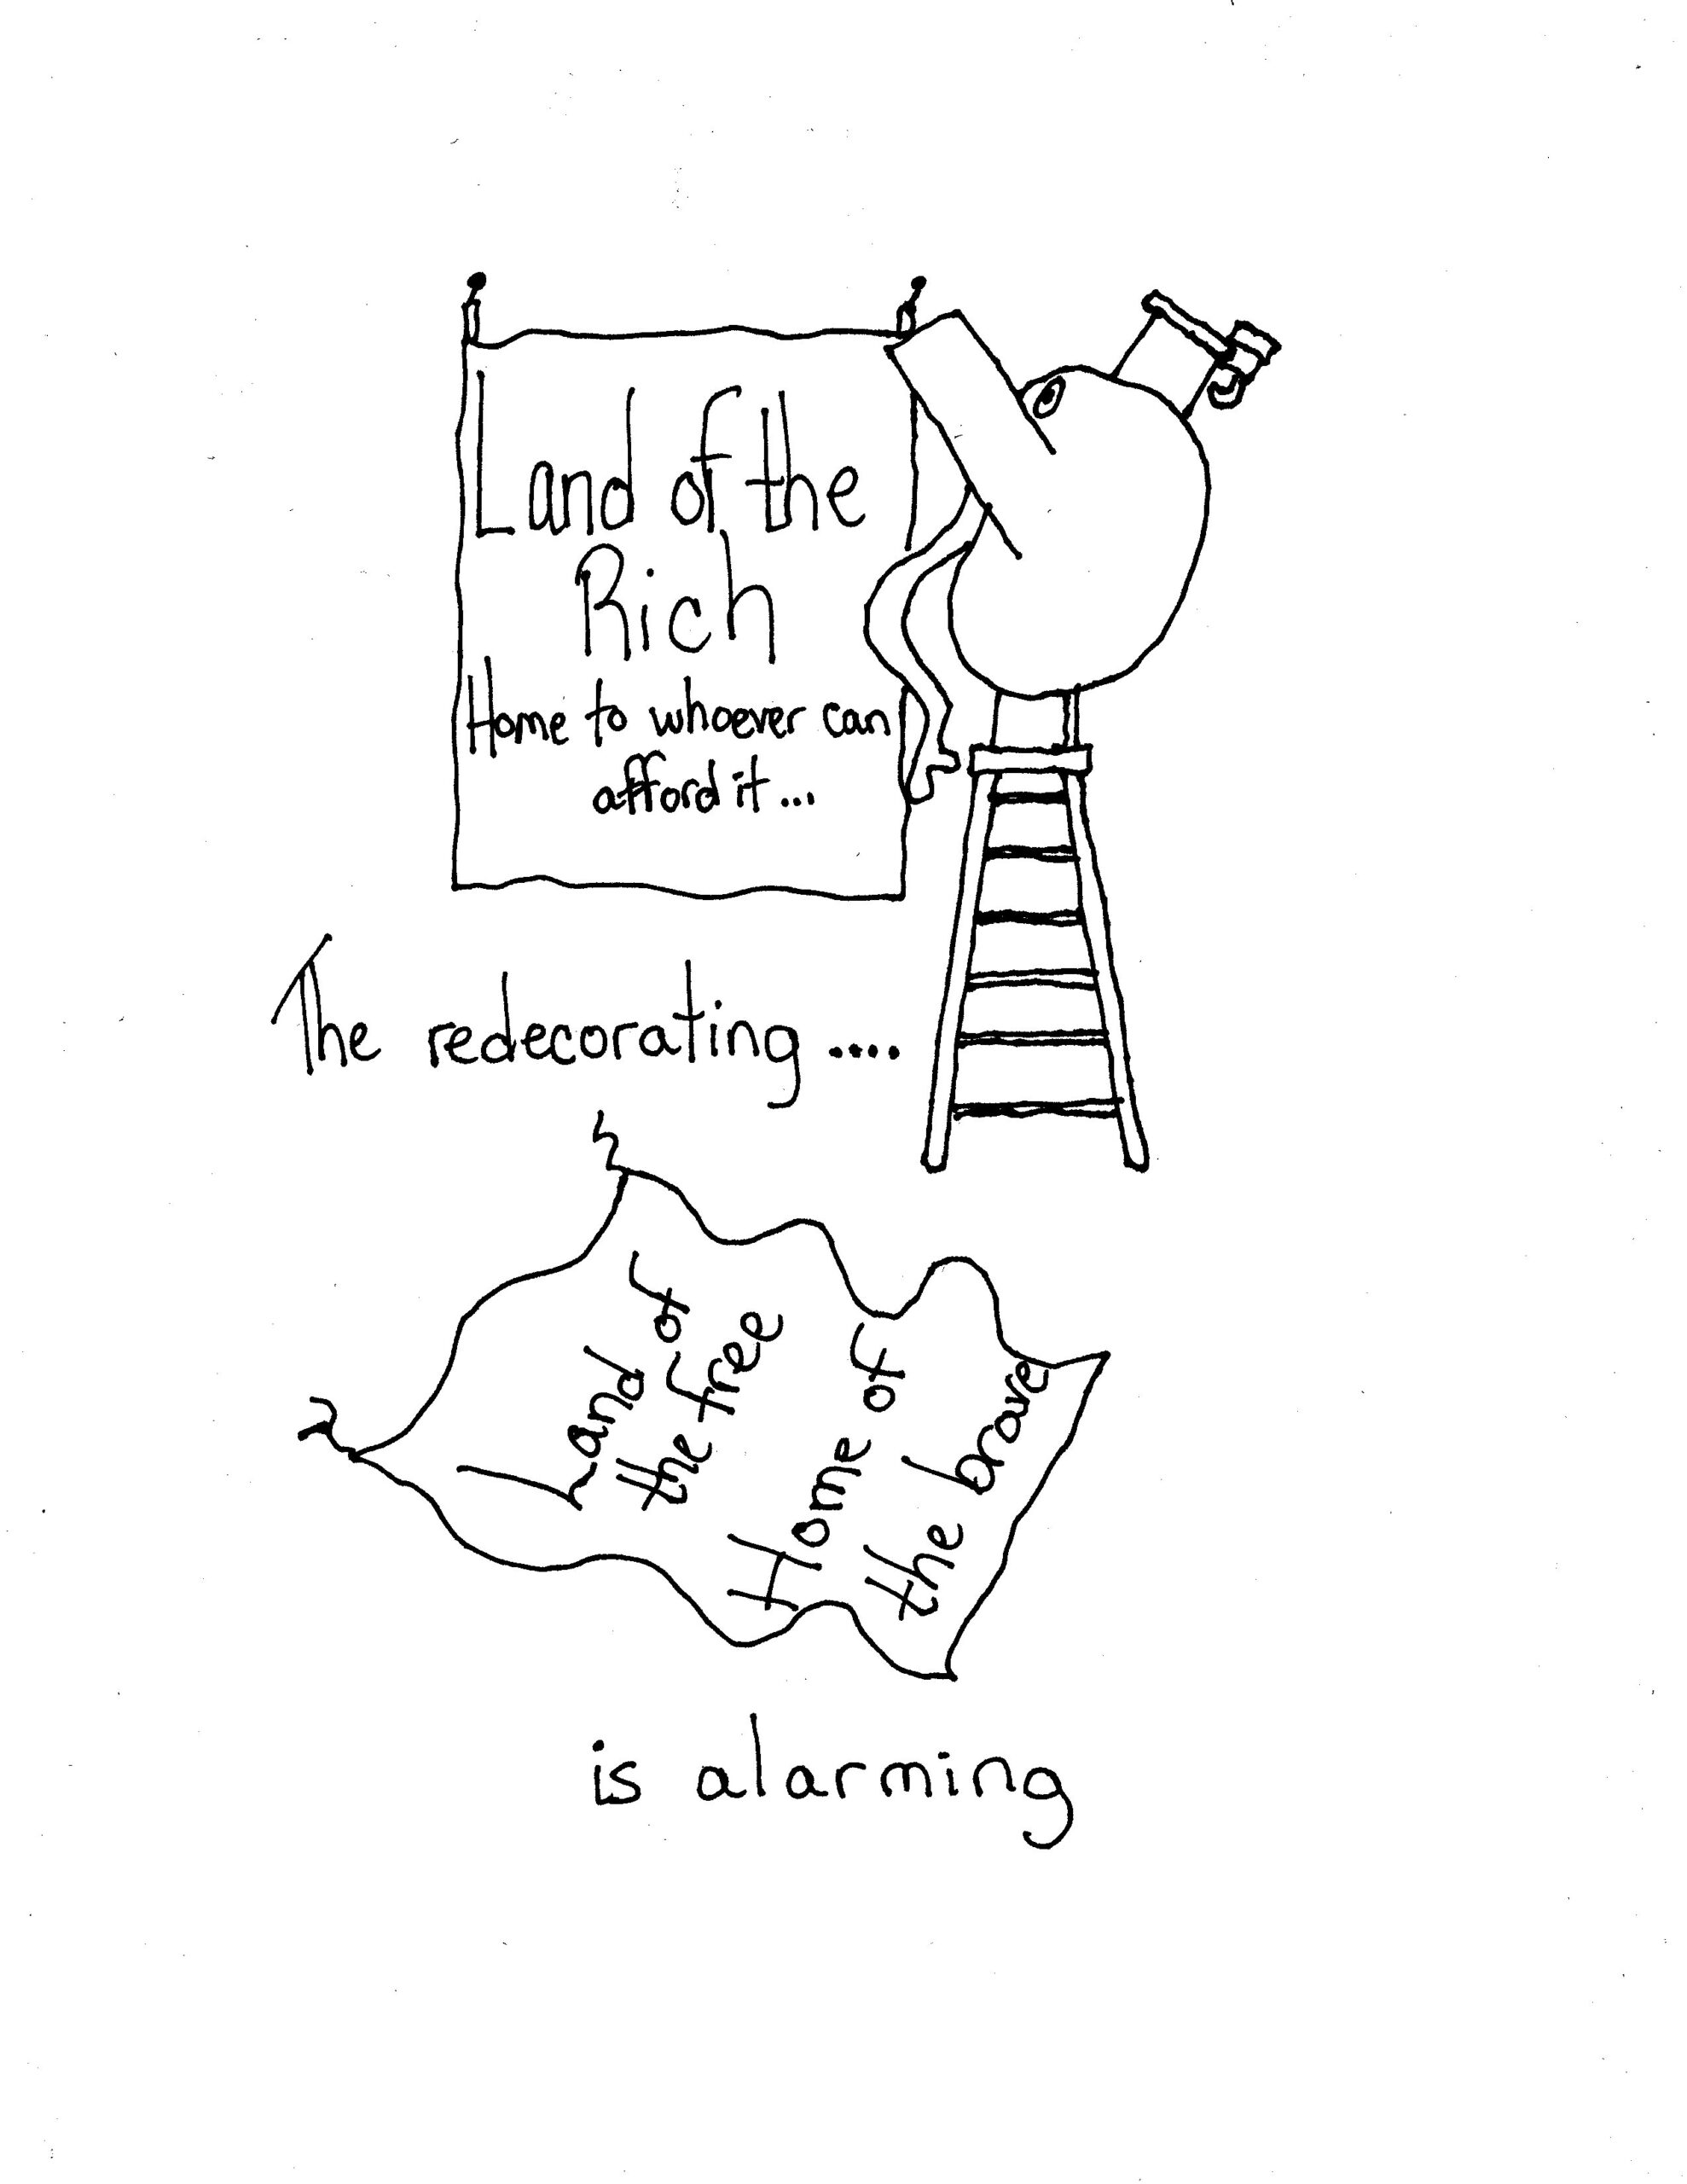 Land of the
Rich
Home to whoever can
afford it...
The redecorating....
Land of
the free
Home of
the brave
is alarming